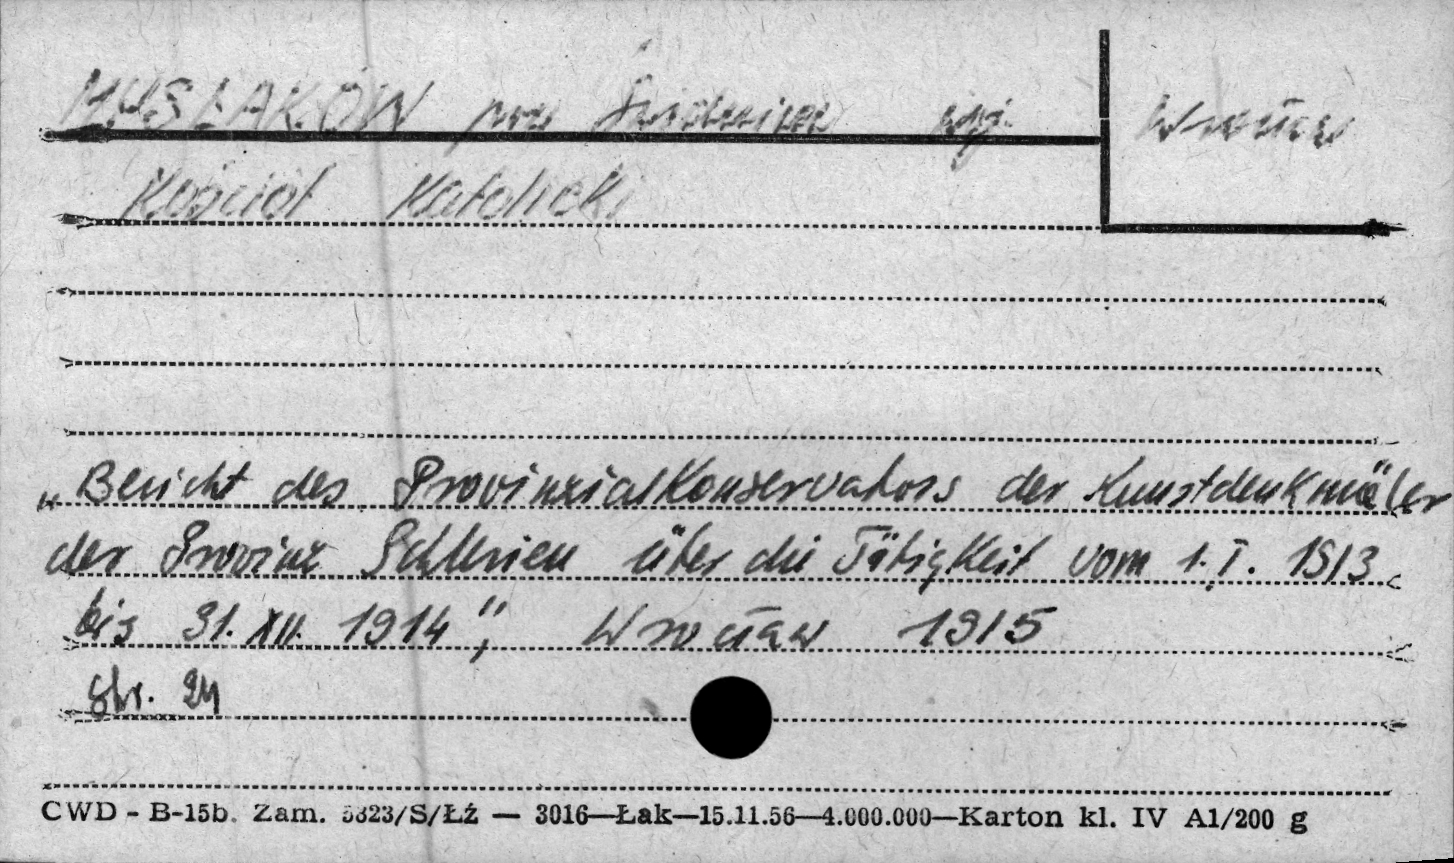 MYSŁAKÓW pow Świdnica woj. Wrocław
Kościół Katolicki
„Bericht des Provinzialkonservators der Kunstdenkmäler
der Provinz Schlesien über die Tätigkeit vom 1.I. 1913
bis 31.XII. 1914", Wrocław 1915
str. 24
CWD - B-15b. Zam. 5823/S/ŁŹ — 3016—Łak—15.11.56—4.000.000—Karton kl. IV A1/200 g